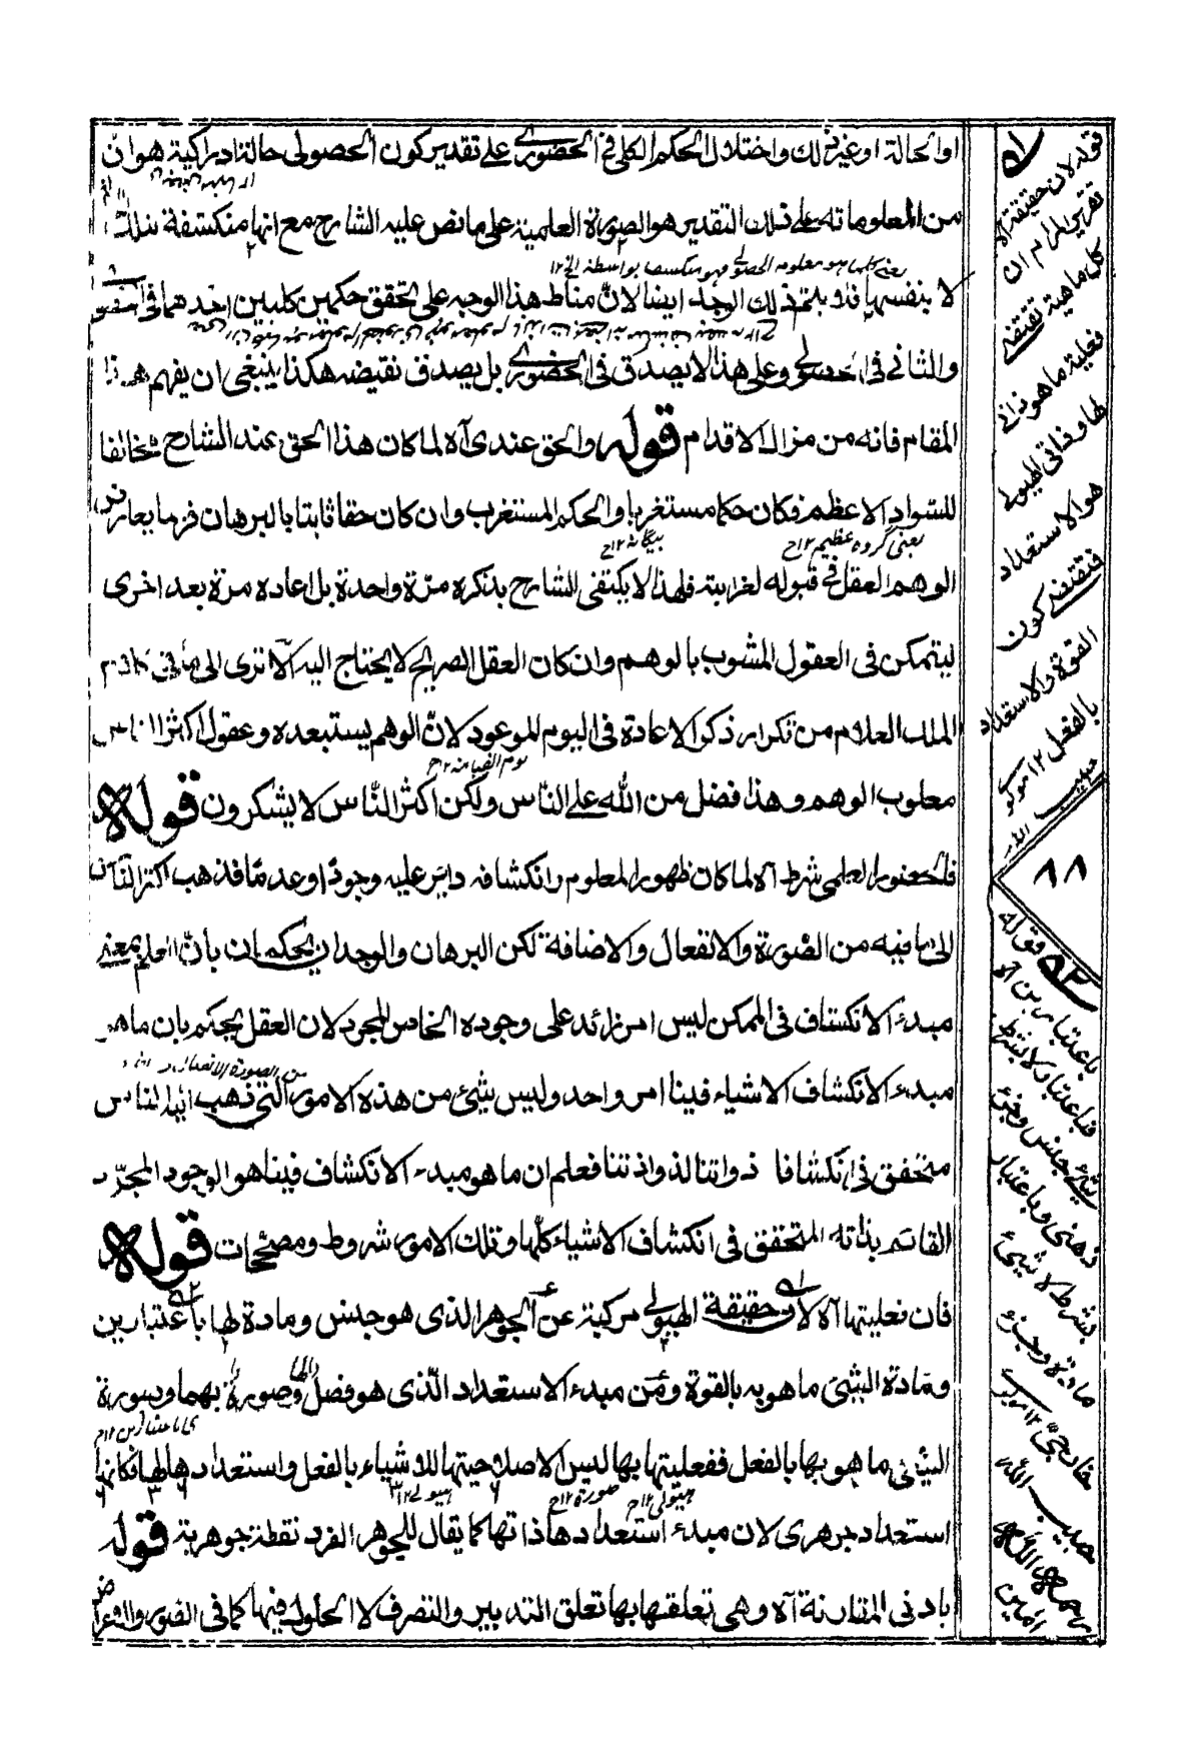 او الحالة او غير ذلك واختلال الحكم الكلي في الحضوري على تقدير كون الحصولي حالة ادراكية هو ان
من المعلوماته على ذلك التقدير هو الصورة العلمية على ما نص عليه الشارح مع انها منكشفة بذلك
لا بنفسها ذلك الوجه ايضا لان مناط هذا الوجه على تحقق حكمين كليين احدهما في
والثاني في الحصولي وعلى هذا لا يصدق في الحضوري بل يصدق نقيضه هكذا ينبغي ان يفهم هذا
المقام فانه من مزال الاقدام قوله والحق عندي آه لما كان هذا الحق عند الشارح مخالفا
للسواد الاعظم فكان حكما مستغربا والحكم المستغرب وان كان حقا ثابتا بالبرهان فربما يعارض
يعنى گروه عظيم ١٢ح
بيگانه ١٢ح
الوهم العقل في قبوله لغرابته فلهذا لا يكتفى الشارح بذكره مرة واحدة بل اعاده مرة بعد اخرى
ليتمكن في العقول المشوب بالوهم وان كان العقل الصريح لا يحتاج اليه الا ترى الى ما في
الملك العلام من تكرار ذكر الاعادة في اليوم الموعود لان الوهم يستبعده وعقول اكثر الناس
يوم القيامة ١٢ح
مغلوب الوهم وهذا فضل من الله على الناس ولكن اكثر الناس لا يشكرون قوله
فالحضور العلمي شرط آه لما كان ظهور المعلوم وانكشافه دائر عليه وجودا وعدما فذهب اكثر
الى ما فيه من الصورة والانفعال والاضافة لكن البرهان والوجدان يحكمان بان العلم بمعنى
مبدء الانكشاف في الممكن ليس امر زائد على وجوده الخاص المجرد لان العقل يحكم بان ما هو
من الصورة الانفعال
مبدء الانكشاف الاشياء فينا امر واحد وليس شيئ من هذه الامور التي ذهب اليها الناس
متحقق في انكشافا ذواتنا لذواتنا فعلم ان ما هو مبدء الانكشاف فينا هو الوجود المجرد
القائم بذاته المتحقق في انكشاف الاشياء كلها وتلك الامور شروط ومصححات قوله
فان فعليتها آه لان حقيقة الهيولى مركبة عن الجوهر الذى هو جنس ومادة لها باعتبارين
ومادة الشئ ما هو به بالقوة ومن مبدء الاستعداد الذى هو فصل وصورة لها بهما وصورة
اى باعتبارين ١٢ح
الشئ ما هو بها بالفعل ففعليتها بها ليس الا صلاحيتها للاشياء بالفعل واستعدادها لها فكانها
هيولى ١٢ح
صورة ١٢ح
استعداد جوهرى لان مبدء استعدادها ذاتها كما يقال للجوهر الفرد نقطة جوهرية قوله
بادنى المقارنة آه وهي تعلقها بها تعلق التدبير والتصرف لا الحلول فيها كما في الصور
قوله لان حقيقة آه
تقرير المرام ان
كل ماهية تقتضى
فعلية ما هو ذاتى
لها وذاتى الهيولى
هو الاستعداد
فتقتضى كون
القوة والاستعداد
بالفعل ١٢
حبيب الله
٨٨
قوله
باعتبارين آه
فباعتبار لا بشرط
شئ جنس وجزء
ذهنى وباعتبار
بشرط لا شيئ
مادة وجزء
خارجى ١٢
حبيب الله